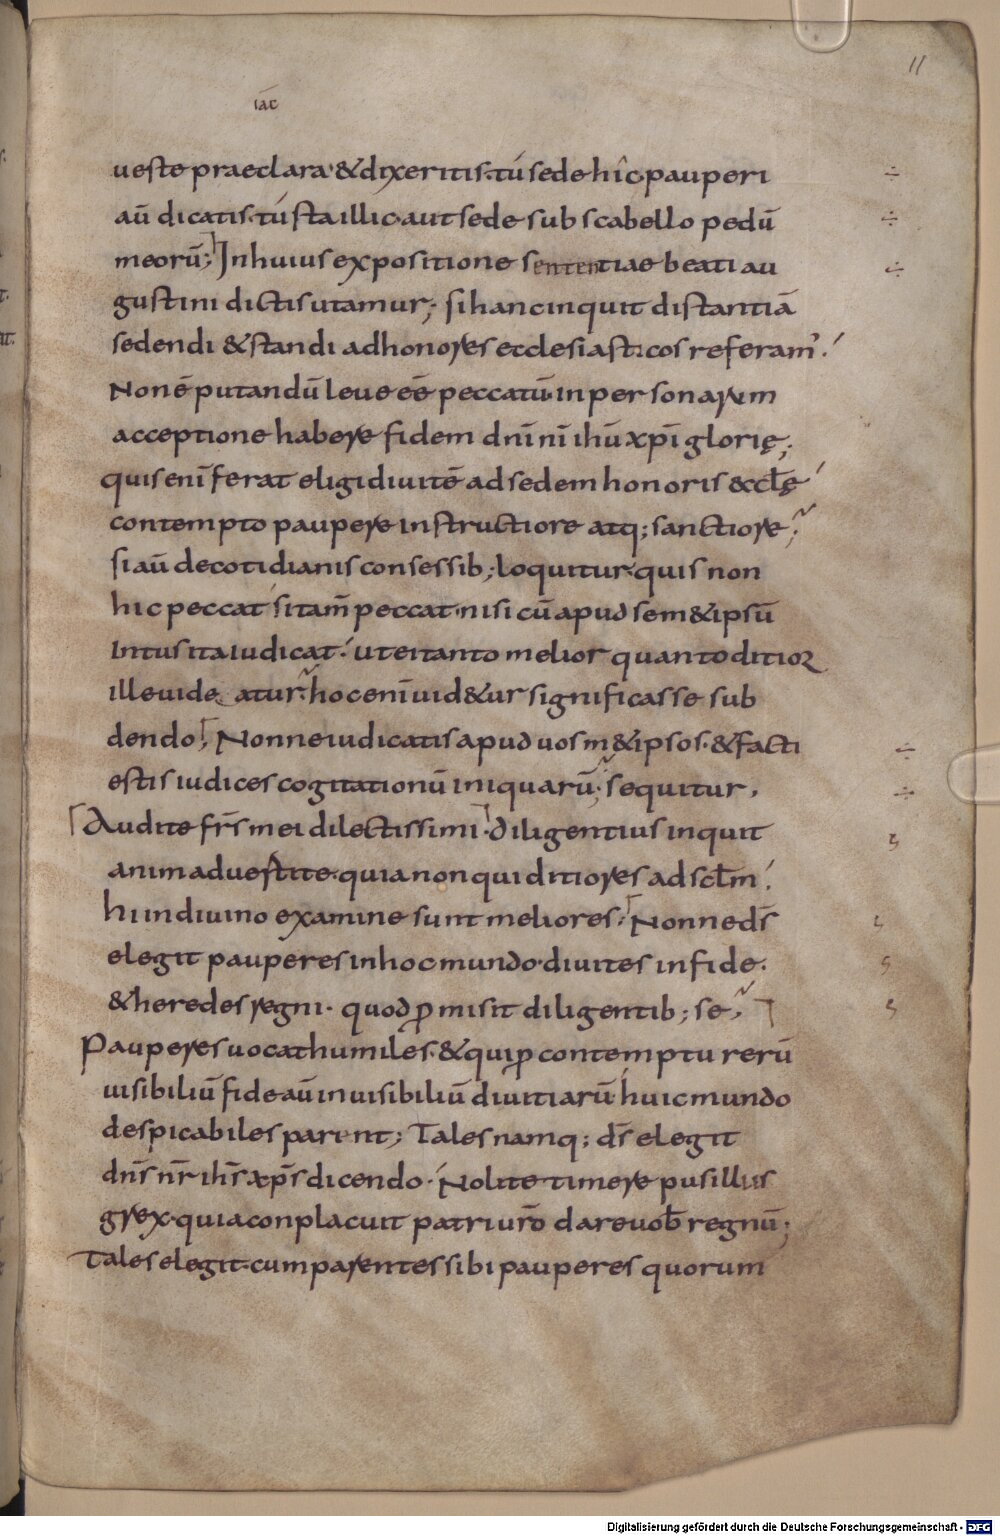 11
iac̄
ueste praeclara & dixeritis. tú sede hîc. pauperi
aū dicatis. tú sta illic. aut sede sub scabello pedū
meorū; In huius expositione sententiae beati au
gustini dictis utamur; si hanc inquit distantiā
sedendi & standi ad honores ecclesiasticos referam̄.
Non ē putandū leue eē peccatū. in personarum
acceptione habere fidem dn̄i nr̄i ih̄u xp̄i glorię;
quis enī ferat eligi diuitē ad sedem honoris æccl̄ę
contempto paupere instructiore atq; sanctiore;
si aū de cotidianis consessib; loquitur. quis non
hic peccat si tam̄ peccat. nisi cū apud sem&ipsū
intus ita iudicat. ut ei tanto melior quanto ditior
ille uideatur. hoc enī uid&ur significasse sub
dendo; Nonne iudicatis apud uosm&ipsos. & facti
estis iudices cogitationū iniquarū; sequitur.
Audite fr̄s mei dilectissimi. diligentius inquit
animaduertite. quia non qui ditiores ad scl̄m.
hi in diuino examine sunt meliores. Nonne dś
elegit pauperes in hoc mundo. diuites in fide.
& heredes regni. quod ꝓmisit diligentib; se;
Pauperes uocat humiles. & qui ꝓ contemptu rerū
uisibiliū fide aū inuisibiliū diuitiarū huic mundo
despicabiles parent; Tales namq; ds̄ elegit
dn̄s nr̄ ih̄s xp̄s dicendo. Nolite timere pusillus
grex. quia conplacuit patri ur̄o dare uob̄ regnū;
Tales elegit. cum parentes sibi pauperes quorum
Digitalisierung gefördert durch die Deutsche Forschungsgemeinschaft - DFG